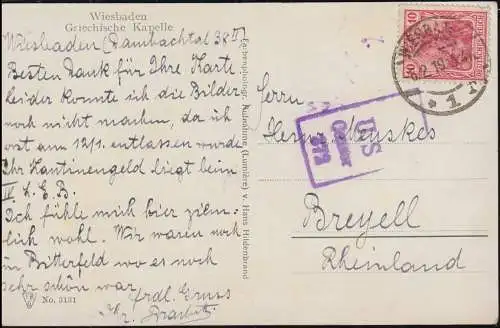 Wiesbaden
Griechische Kapelle
Wiesbaden (Dambachtal 38 II)
Besten Dank für Ihre Karte,
leider konnte ich die Bilder
noch nicht machen, da ich
erst am 12/1. entlassen wurde
Ihr Kantinengeld liegt beim
IV. L.E.B.
Ich fühle mich hier ziem-
lich wohl. Wir waren noch
in Bitterfeld wo es noch
sehr schön war.
frdl. Gruss
No. 3131
Farbenphotogr. Aufnahme (Lumière) v. Hans Hildenbrand
Herrn
Breyell
Rheinland
US
Censor
273
WIESBADEN
1
10
10
DEUTSCHES REICH